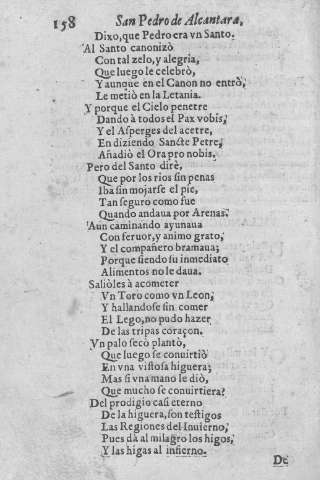 158 San Pedro de Alcantara,
Dixo, que Pedro era vn Santo.
Al Santo canonizò
Con tal zelo, y alegria,
Que luego le celebrò,
Y aunque en el Canon no entrò,
Le metiò en la Letania.
Y porque el Cielo penetre
Dando à todos el Pax vobis,
Y el Asperges del acetre,
En diziendo Sancte Petre,
Añadiò el Ora pro nobis.
Pero del Santo dirè,
Que por los rios sin penas
Iba sin mojarse el pie,
Tan seguro como fue
Quando andaua por Arenas.
Aun caminando ayunaua
Con feruor, y animo grato,
Y el compañero bramaua;
Porque siendo su inmediato
Alimentos no le daua.
Saliòles à acometer
Vn Toro como vn Leon,
Y hallandose sin comer
El Lego, no pudo hazer
De las tripas coraçon.
Vn palo secò plantò,
Que luego se conuirtiò
En vna vistosa higuera;
Mas si vna mano le diò,
Que mucho se conuirtiera?
Del prodigio casi eterno
De la higuera, son testigos
Las Regiones del Inuierno,
Pues dà al milagro los higos,
Y las higas al infierno.
De